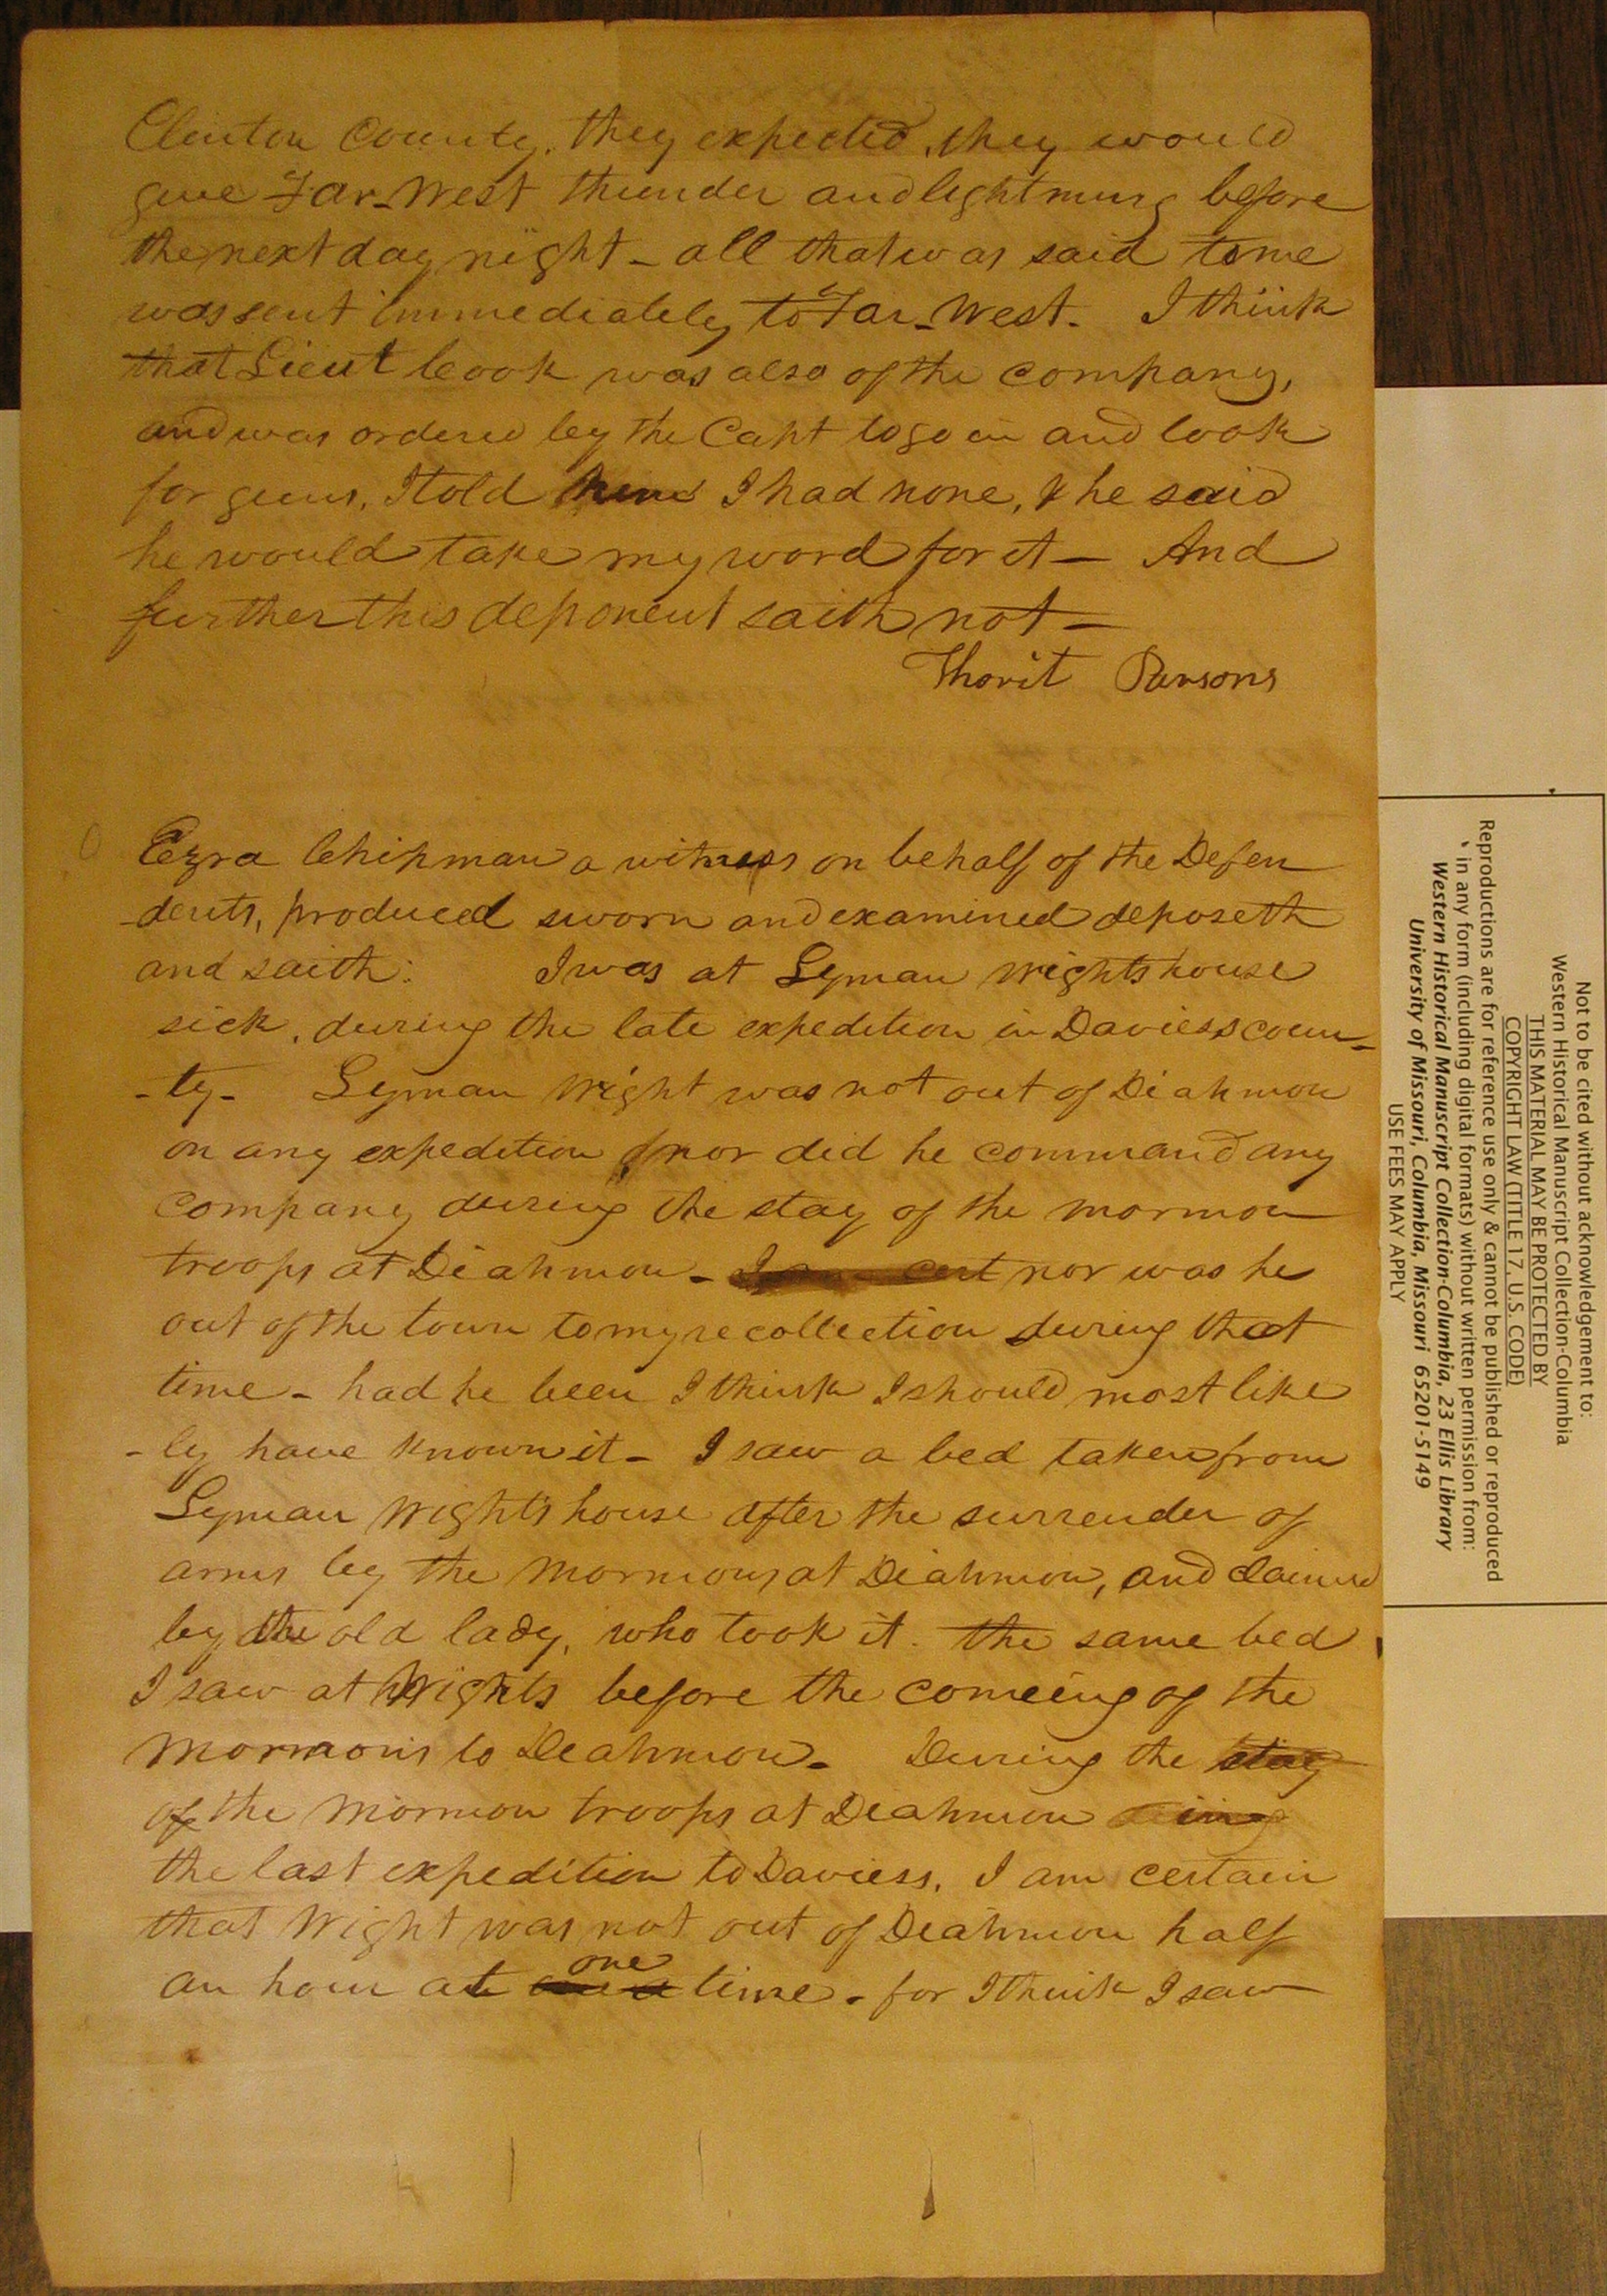 Clinton County. they expected, they would
give Far-West thunder and lightning before
the next day night - all that was said to me
was sent immediately to Far-West. I think
that Lieut Cook was also of the company,
and was ordered by the Capt to go in and look
for guns, I told him I had none, & he said
he would take my word for it - And
further this deponent saith not -
Thorit Parsons
Ezra Chipman a witness on behalf of the Defen
-dents, produced sworn and examined deposeth
and saith: I was at Lyman Wights house
sick, during the late expedition in Daviess coun-
-ty- Lyman Wight was not out of Diahmon
on any expedition nor did he command any
company during the stay of the mormon
troops at Diahmon - I cert nor was he
out of the town to my recollection during that
time - had he been I think I should most like
-ly have known it - I saw a bed taken from
Lyman Wight's house after the surrender of
arms by the Mormons at Diahmon, and claimed
by the old lady, who took it. the same bed
I saw at Wights before the comeing of the
Mormons to Diahmon - During the stay
of the Mormon troops at Diahmon
the last expedition to Daviess, I am certain
that Wight was not out of Diahmon half
an hour at one time - for I think I saw
Not to be cited without acknowledgement to:
Western Historical Manuscript Collection-Columbia
THIS MATERIAL MAY BE PROTECTED BY
COPYRIGHT LAW (TITLE 17, U.S. CODE)
Reproductions are for reference use only & cannot be published or reproduced
in any form (including digital formats) without written permission from:
Western Historical Manuscript Collection-Columbia, 23 Ellis Library
University of Missouri, Columbia, Missouri 65201-5149
USE FEES MAY APPLY